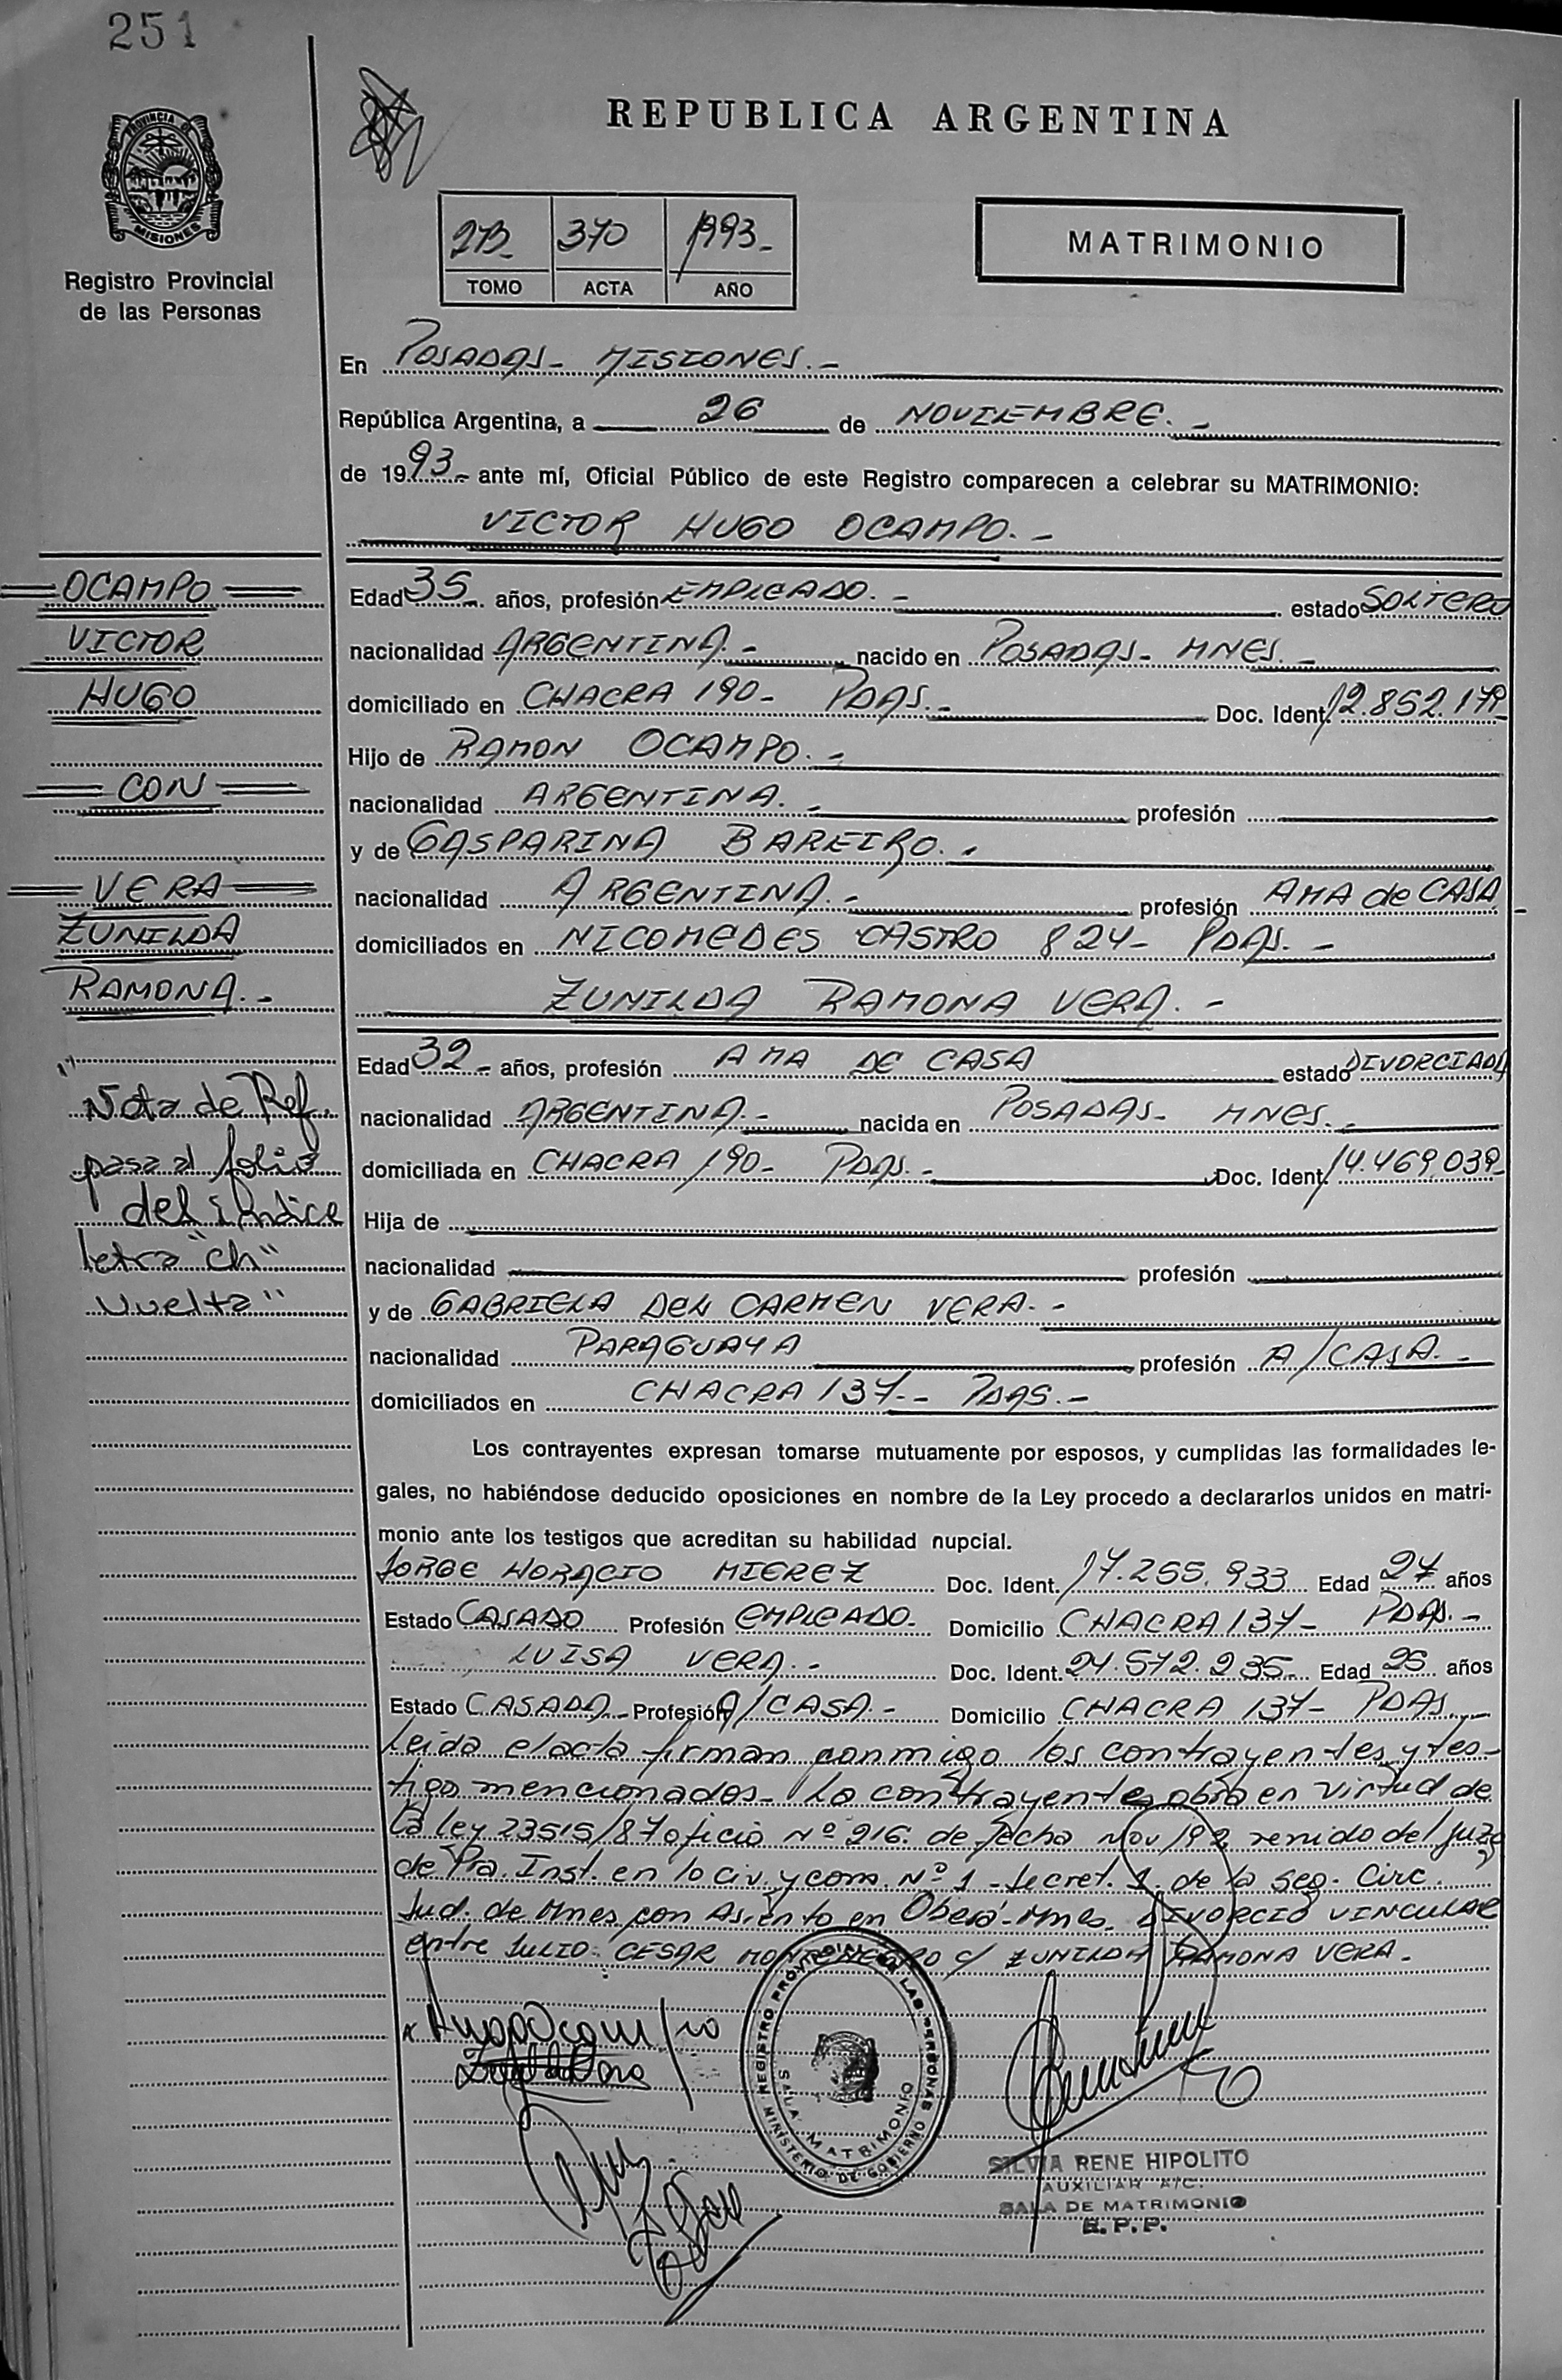 251
PROVINCIA D
MISIONES
Registro Provincial
de las Personas
REPUBLICA ARGENTINA
2B- 370 1993-
TOMO ACTA AÑO
MATRIMONIO
En POSADAS- MISIONES.-
República Argentina, a 26 de NOVIEMBRE.-
de 1993.- ante mí, Oficial Público de este Registro comparecen a celebrar su MATRIMONIO:
VICTOR HUGO OCAMPO.-
OCAMPO
VICTOR
HUGO
CON
VERA
ZUNILDA
RAMONA.-
Edad 35 años, profesión EMPLEADO.- estado SOLTERO
nacionalidad ARGENTINA.- nacido en POSADAS- MNES.-
domiciliado en CHACRA 190- PDAS.- Doc. Ident. 12.852.179-
Hijo de RAMON OCAMPO.-
nacionalidad ARGENTINA.- profesión
y de GASPARINA BAREIRO.-
nacionalidad ARGENTINA.- profesión AMA de CASA
domiciliados en NICOMEDES CASTRO 824- PDAS.-
ZUNILDA RAMONA VERA.-
Edad 32- años, profesión AMA DE CASA estado DIVORCIADA
nacionalidad ARGENTINA.- nacida en POSADAS- MNES.-
domiciliada en CHACRA 190- PDAS.- Doc. Ident. 14.469.039-
Hija de
nacionalidad profesión
y de GABRIELA DEL CARMEN VERA.-
nacionalidad PARAGUAYA profesión A/CASA.-
domiciliados en CHACRA 137-- PDAS.-
"Nota de Ref.
pasa al folio
del indice
letra "ch"
vuelta"
Los contrayentes expresan tomarse mutuamente por esposos, y cumplidas las formalidades le-
gales, no habiéndose deducido oposiciones en nombre de la Ley procedo a declararlos unidos en matri-
monio ante los testigos que acreditan su habilidad nupcial.
JORGE HORACIO MIEREZ Doc. Ident. 17.255.933 Edad 27 años
Estado CASADO Profesión EMPLEADO- Domicilio CHACRA 137- PDAS.-
LUISA VERA.- Doc. Ident. 24.572.235- Edad 25 años
Estado CASADA- Profesión A/CASA.- Domicilio CHACRA 137- PDAS.-
Leida el acta firman conmigo los contrayentes y tes-
tigos mencionados- La contrayente obra en virtud de
la ley 23515/87 oficio Nº 216. de fecha Nov/92 remido del Juzg
de Pra. Inst. en lo civ. y com. Nº 1 - Secret. 1. de la seg. Circ.
Jud. de Mnes con Asiento en Oberá- Mnes. DIVORCIO VINCULAR
entre JULIO CESAR MONTENEGRO c/ ZUNILDA RAMONA VERA.-
REGISTRO PROVINCIAL DE LAS PERSONAS
SALA MATRIMONIO
MINISTERIO DE GOBIERNO
SILVIA RENE HIPOLITO
AUXILIAR A/C.
SALA DE MATRIMONIO
R.P.P.